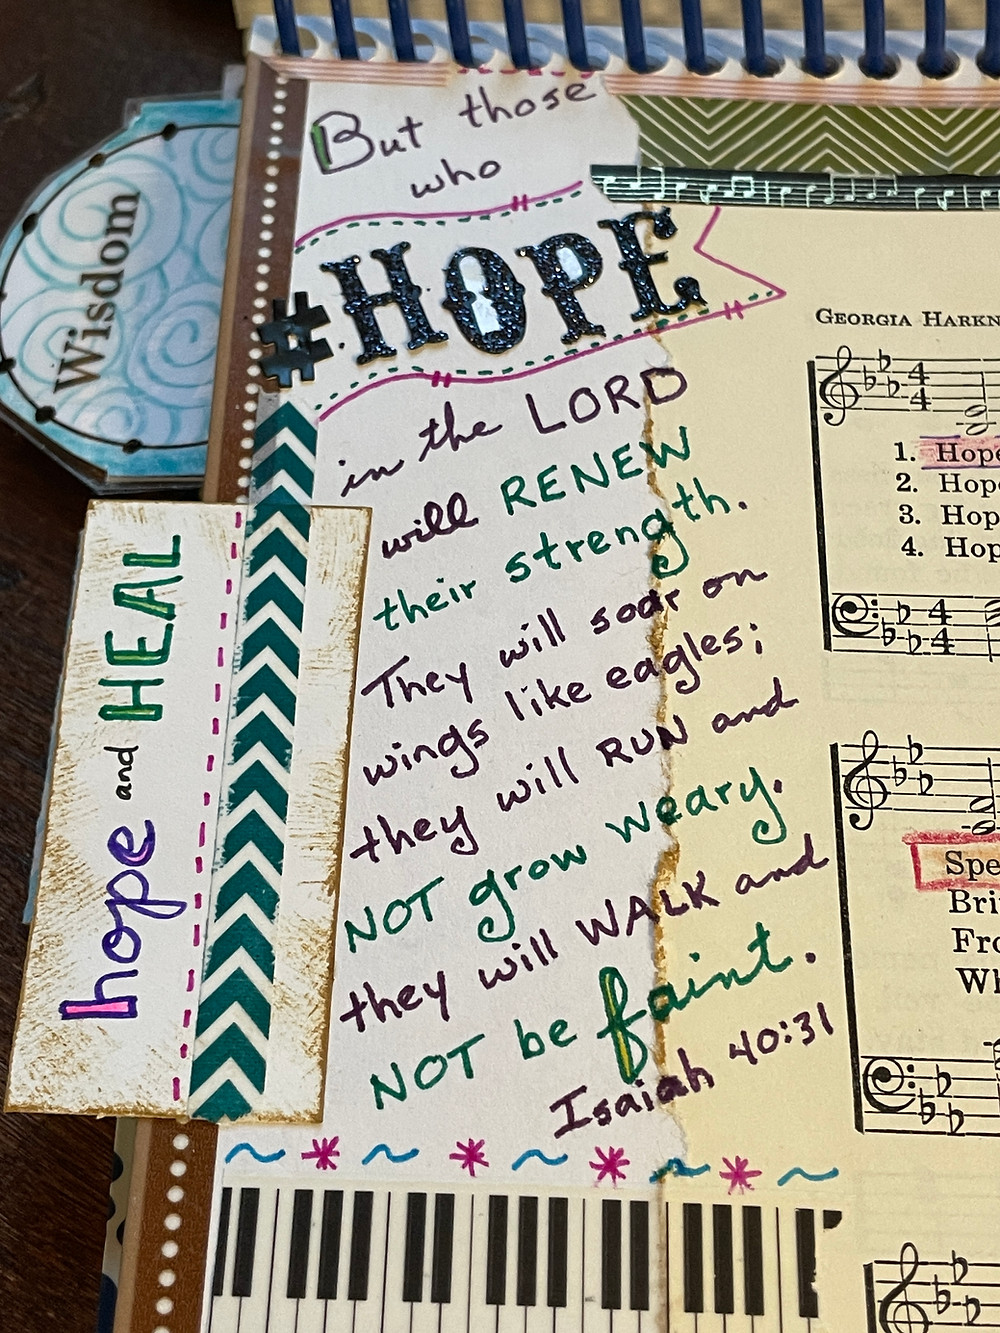 But those
who
#HOPE
in the LORD
will RENEW
their strength.
They will soar on
wings like eagles;
they will RUN and
NOT grow weary.
they will WALK and
NOT be faint.
Isaiah 40:31
Wisdom
hope and HEAL
GEORGIA HARKN
4
4
1. Hope
2. Hope
3. Hop
4. Hop
4
4
Spe
Bri
Fro
Wh